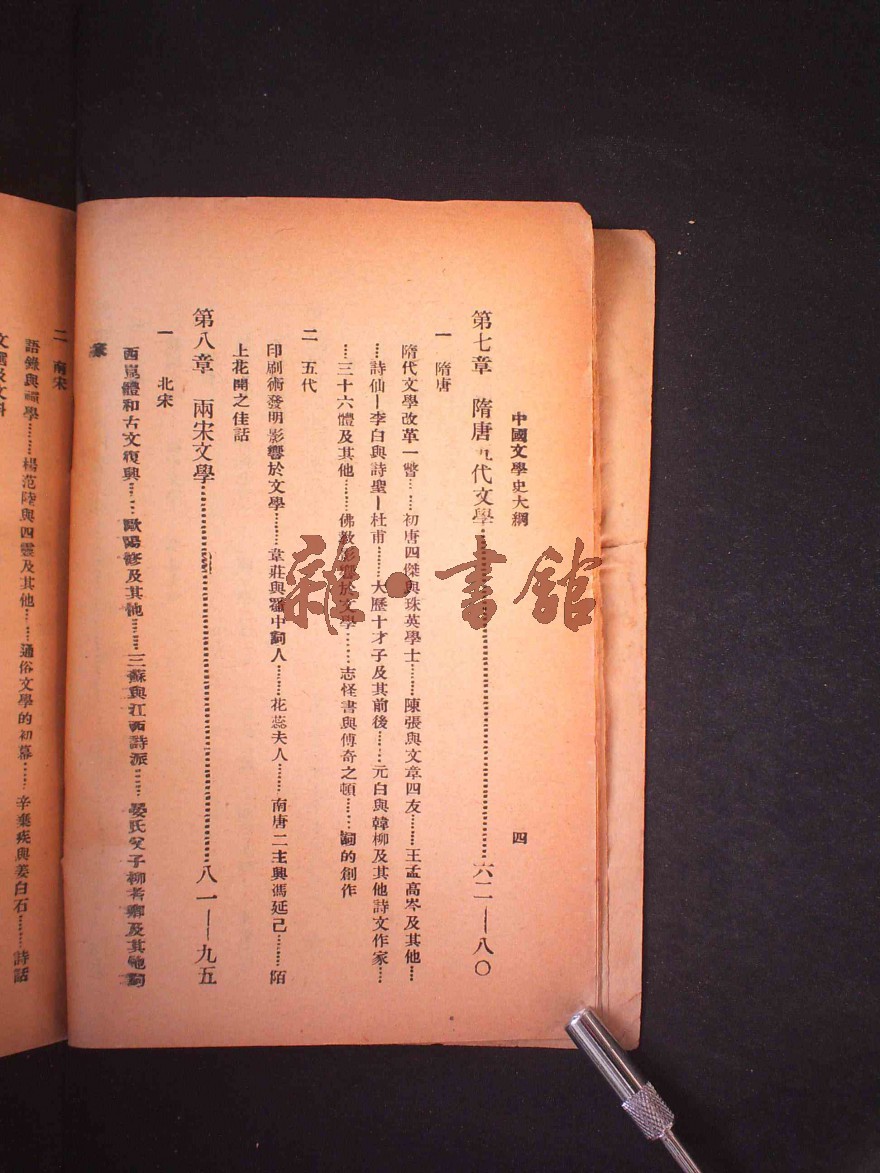 中國文學史大綱
四
第七章 隋唐五代文學……六二—八〇
一 隋唐
隋代文學改革一瞥……初唐四傑與珠英學士……陳張與文章四友……王孟高岑及其他……
詩仙—李白與詩聖—杜甫……大歷十才子及其前後……元白與韓柳及其他詩文作家……
……三十六體及其他……佛教影響於文學……志怪書與傳奇之頓……詞的創作
二 五代
印刷術發明影響於文學……韋莊與蜀中詞人……花蕊夫人……南唐二主與馮延己……陌
上花開之佳話
第八章 兩宋文學……八一—九五
一 北宋
西崑體和古文復興……歐陽修及其他……三蘇與江西詩派……晏氏父子柳耆卿及其他詞
家
二 南宋
語錄與理學……楊范陸與四靈及其他……通俗文學的初幕……辛棄疾與姜白石……詩話
文選及文料
雜·書館